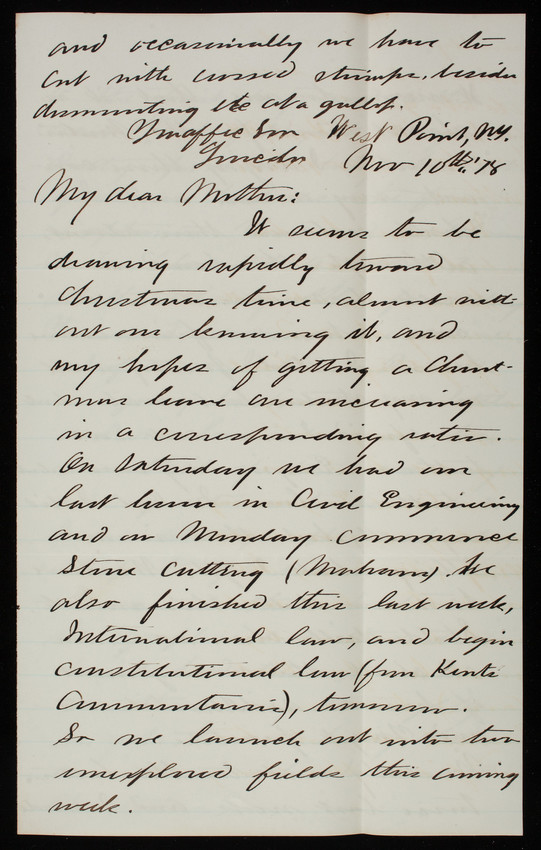 and occasionally we have to
cut with crossed stirrups, besides
dismounting etc at a gallop.
Yr affec Son West Point, N.Y.
Lincoln Nov 10th, '78
My dear Mother:
It seems to be
drawing rapidly toward
Christmas time, almost with-
out our knowing it, and
my hopes of getting a Christ-
mas leave are increasing
in a corresponding ratio.
On Saturday we had our
last lesson in Civil Engineering
and on Monday commence
Stone Cutting (Mahan). We
also finished this last week,
International law, and begin
constitutional law (from Kents
Commentaries), tomorrow.
So we launch out into two
unexplored fields this coming
week.